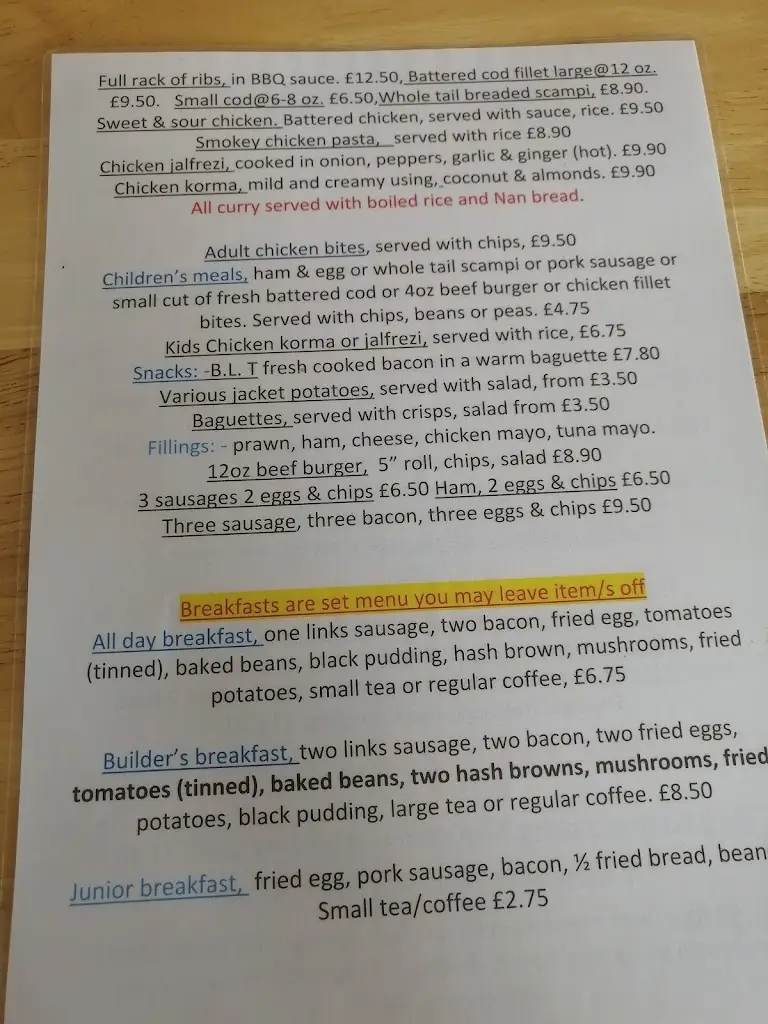 Full rack of ribs, in BBQ sauce. £12.50, Battered cod fillet large@12 oz.
£9.50. Small cod@6-8 oz. £6.50,Whole tail breaded scampi, £8.90.
Sweet & sour chicken. Battered chicken, served with sauce, rice. £9.50
Smokey chicken pasta, served with rice £8.90
Chicken jalfrezi, cooked in onion, peppers, garlic & ginger (hot). £9.90
Chicken korma, mild and creamy using, coconut & almonds. £9.90
All curry served with boiled rice and Nan bread.
Adult chicken bites, served with chips, £9.50
Children's meals, ham & egg or whole tail scampi or pork sausage or
small cut of fresh battered cod or 4oz beef burger or chicken fillet
bites. Served with chips, beans or peas. £4.75
Kids Chicken korma or jalfrezi, served with rice, £6.75
Snacks: -B.L. T fresh cooked bacon in a warm baguette £7.80
Various jacket potatoes, served with salad, from £3.50
Baguettes, served with crisps, salad from £3.50
Fillings: - prawn, ham, cheese, chicken mayo, tuna mayo.
12oz beef burger, 5” roll, chips, salad £8.90
3 sausages 2 eggs & chips £6.50 Ham, 2 eggs & chips £6.50
Three sausage, three bacon, three eggs & chips £9.50
Breakfasts are set menu you may leave item/s off
All day breakfast, one links sausage, two bacon, fried egg, tomatoes
(tinned), baked beans, black pudding, hash brown, mushrooms, fried
potatoes, small tea or regular coffee, £6.75
Builder's breakfast, two links sausage, two bacon, two fried eggs,
tomatoes (tinned), baked beans, two hash browns, mushrooms, fried
potatoes, black pudding, large tea or regular coffee. £8.50
Junior breakfast, fried egg, pork sausage, bacon, ½ fried bread, bean
Small tea/coffee £2.75